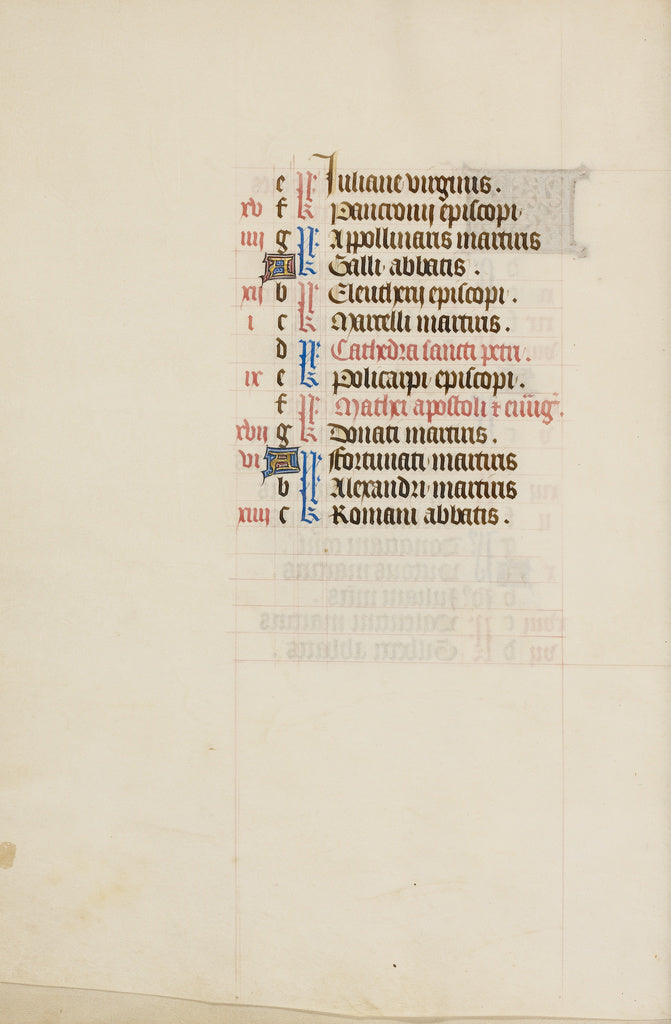 e kl Iuliane virginis.
xv f kl Pancronij episcopi
iiij g kl Appollinaris martiris
A kl Galli abbatis.
xij b kl Eleutherij episcopi.
i c kl Marcelli martiris.
d kl Cathedra sancti petri.
ix e kl Policarpi episcopi.
f kl Mathei apostoli
xvij g kl Donati martiris.
vi A kl Fortunati martiris
b kl Alexandri martiris
xiiij c kl Romani abbatis.